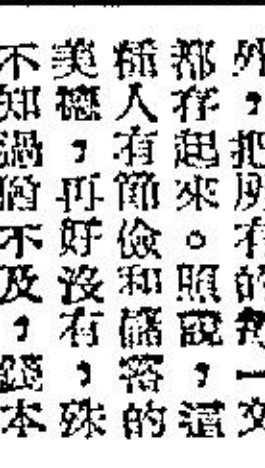 外，把所有的一文
都存起來。照說，這
種人有節儉和儲蓄的
美德，再好沒有，殊
不知過猶不及，錢本